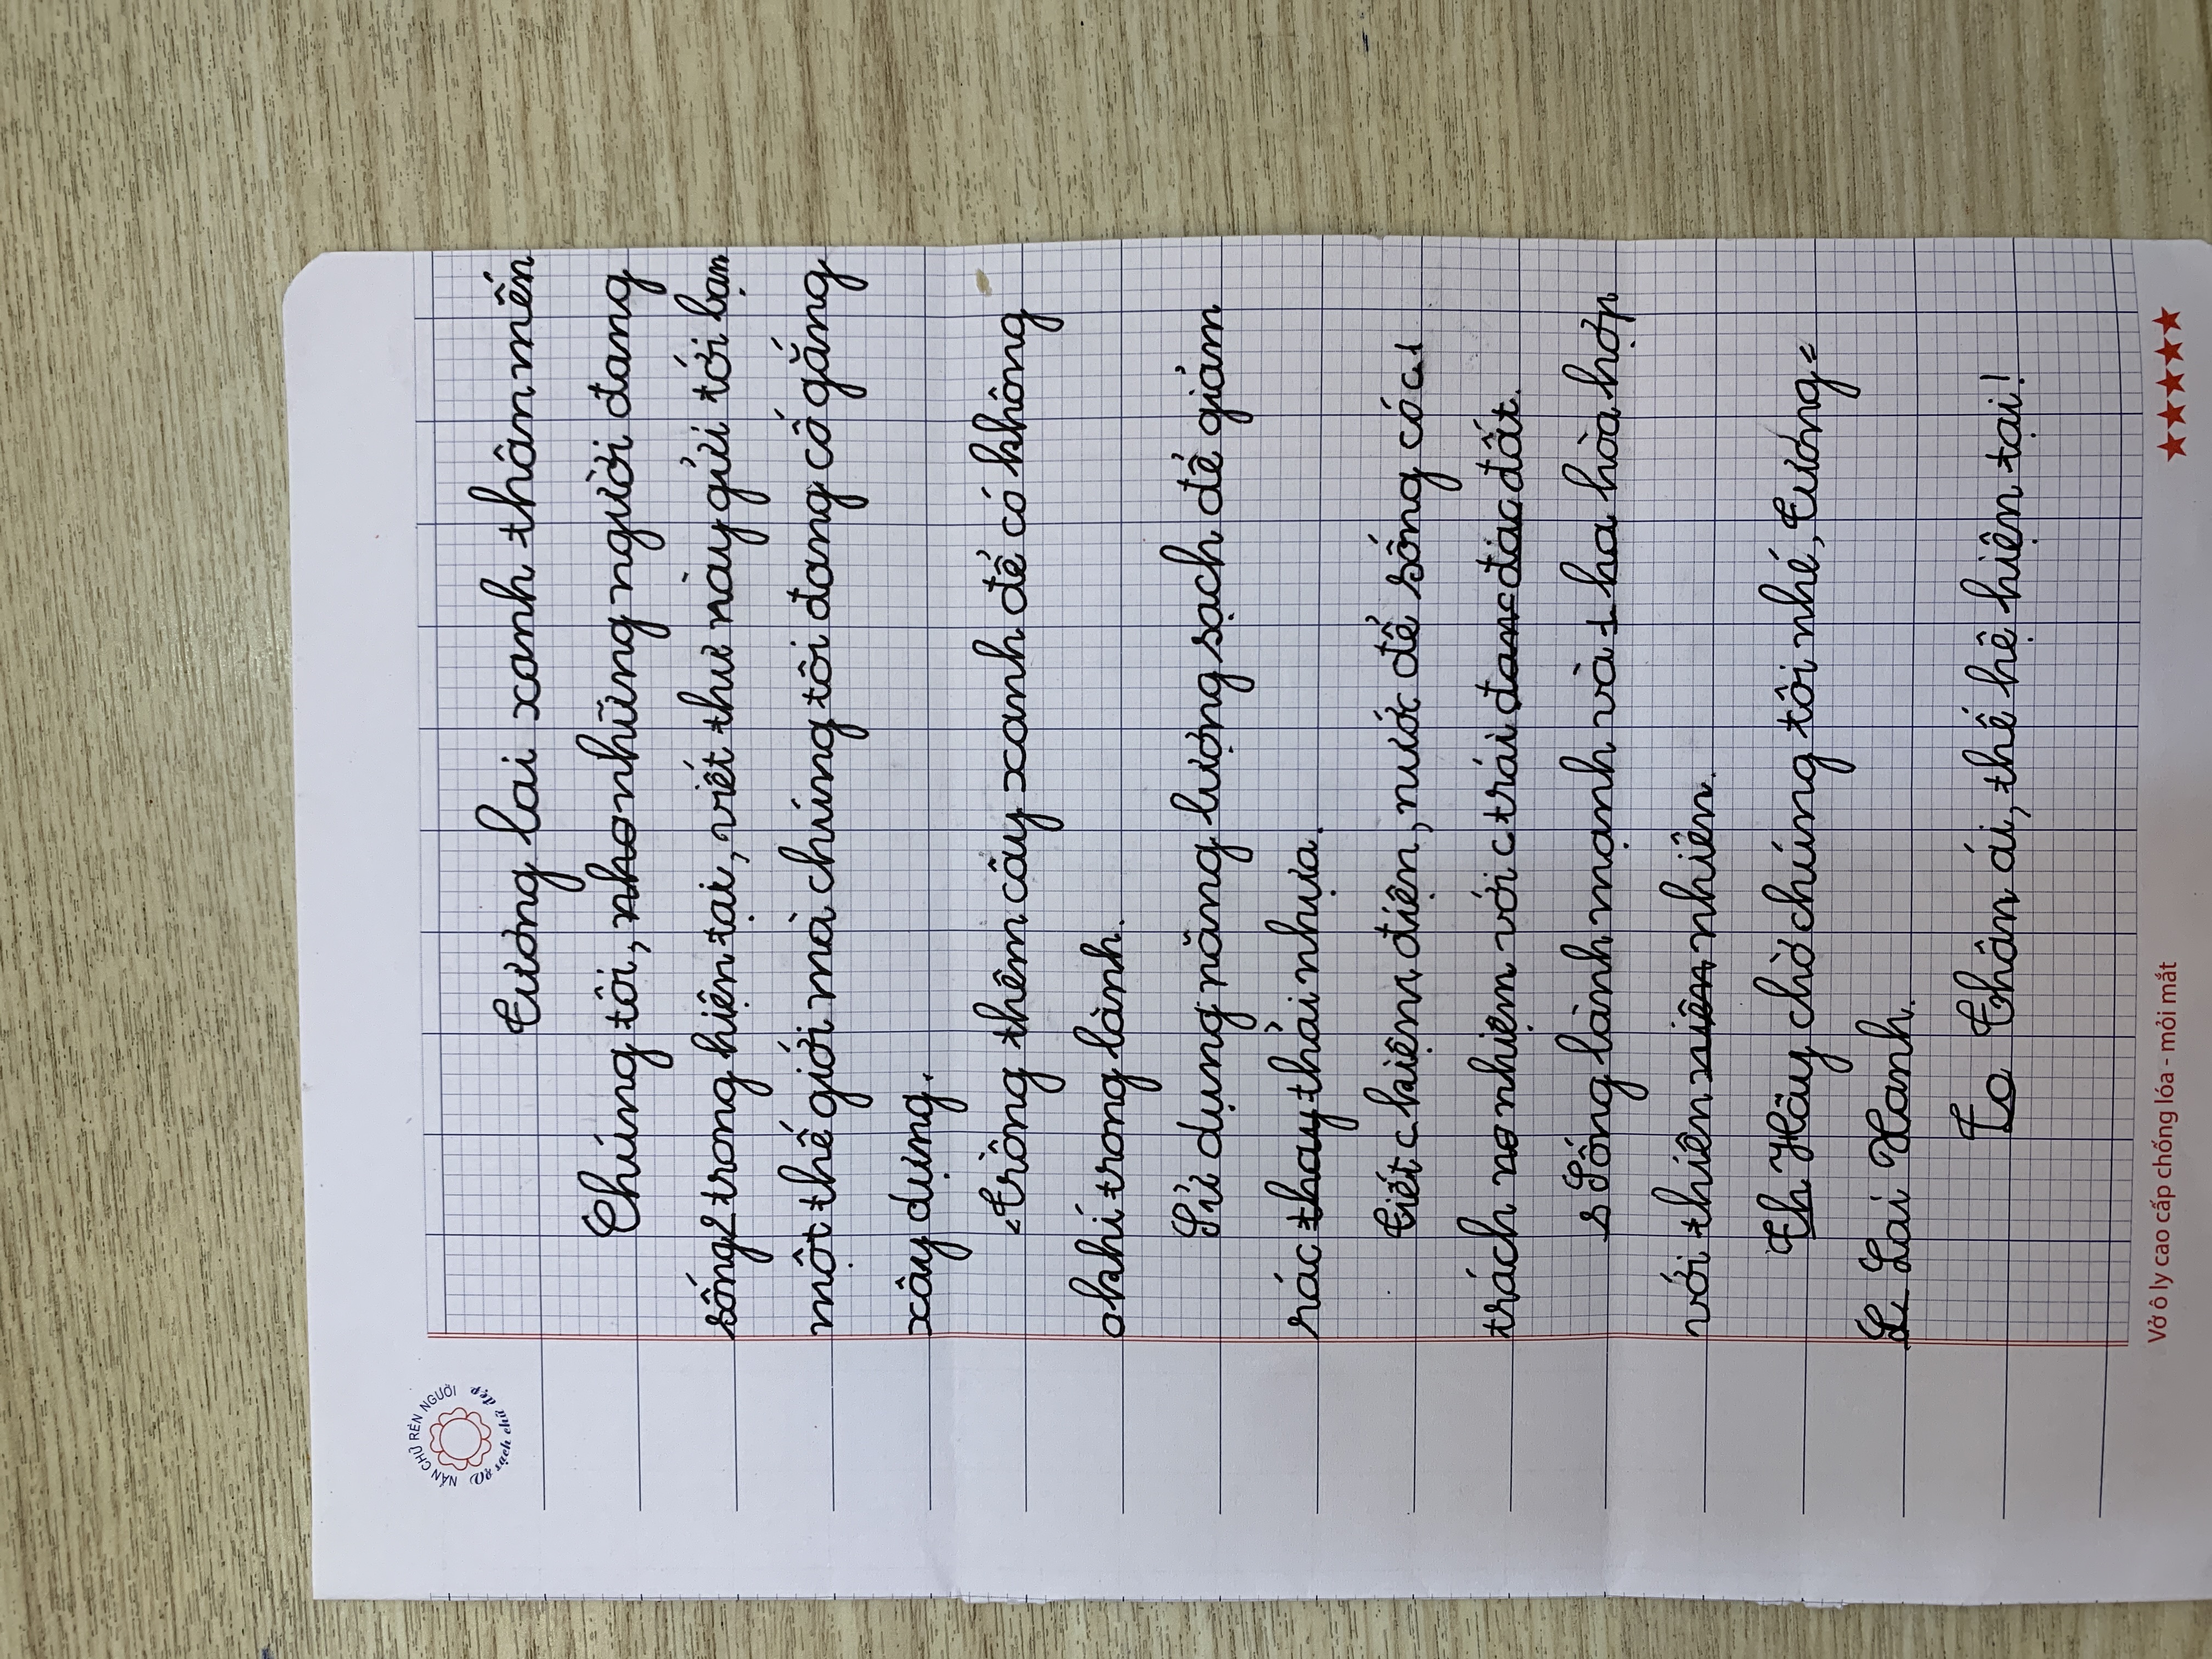 NẮN CHỮ RÈN NGƯỜI
Vở sạch chữ đẹp
Tương lai xanh thân mến
Chúng tôi, những người đang
sống trong hiện tại, viết thư này gửi tới bạn
một thế giới mà chúng tôi đang cố gắng
xây dựng.
Trồng thêm cây xanh để có không
khí trong lành.
Sử dụng năng lượng sạch để giảm
rác thải nhựa.
Tiết kiệm điện, nước để sống có
trách nhiệm với trái đất.
Sống lành mạnh và hòa hợp
với thiên nhiên.
Hãy chờ chúng tôi nhé, Tương
Lai Xanh.
Thân ái, thế hệ hiện tại!
Vở ô ly cao cấp chống lóa - mỏi mắt